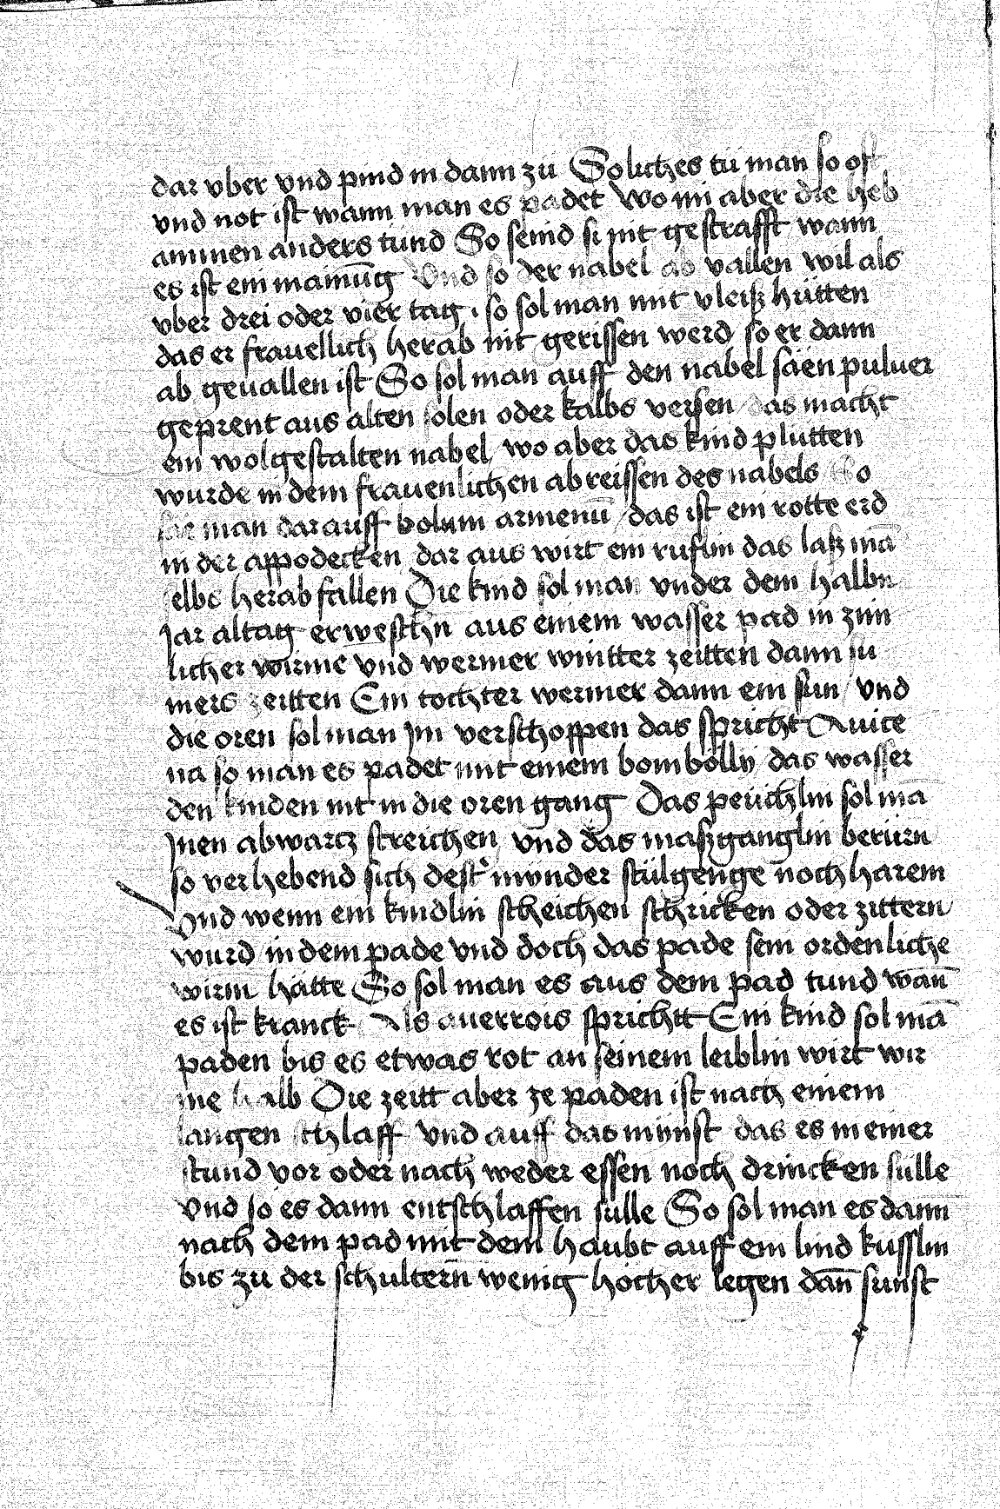 dar vber vnd pind in dann zu Soliches tu man so oft
vnd not ist wann man es padet Wo nu aber die heb
ammen anders tund So seind si nit gestrafft wann
es ist ein mainūg Vnd so der nabel ab vallen wil als
vber drei oder vier tag so sol man mit vleiß hütten
das er frauellich herab nit gerissen werd so er dann
ab geuallen ist So sol man auff den nabel säen puluer
geprent aus alten solen oder kalbs versen das macht
ein wolgestalten nabel wo aber das kind plutten
wurde in dem frauenlichen abreissen des nabels So
säe man darauff bolum armenū das ist ein rotte erd
in der appodecken dar aus wirt ein ruflin das laß mā
selbs herab fallen Die kind sol man vnder dem halbn
Jar altag erweschn aus einem wasser pad in zim
licher wirme vnd wermer wintter zeitten dann su
mers zeitten Ein tochter wermer dann ein sun / vnd
die oren sol man Im verschoppen das spricht Auice
na so man es padet mit einem bombolly das wasser
den kinden nit in die oren gang Das peüchlin sol mā
Inen abwartz streichen vnd das maßganglin berürn
so verhebend sich dest mynder stülgenge noch harem
Vnd wenn ein kindlin scheichen schricken oder zittern
wurd in dem pade vnd doch das pade sein ordenliche
wirm hätte So sol man es aus dem pad tund wañ
es ist kranck Als auerrois sprichtt Ein kind sol mā
paden bis es etwas rot an seinem leiblin wirt wir
me halb Die zeitt aber ze paden ist nach einem
langen schlaff vnd auff das minst das es in einer
stund vor oder nach weder essen noch drincken sülle
vnd so es dann entschlaffen sülle So sol man es dann
nach dem pad mit dem haubt auff ein lind küsslin
bis zu der schultern wenig höcher legen dañ sunst